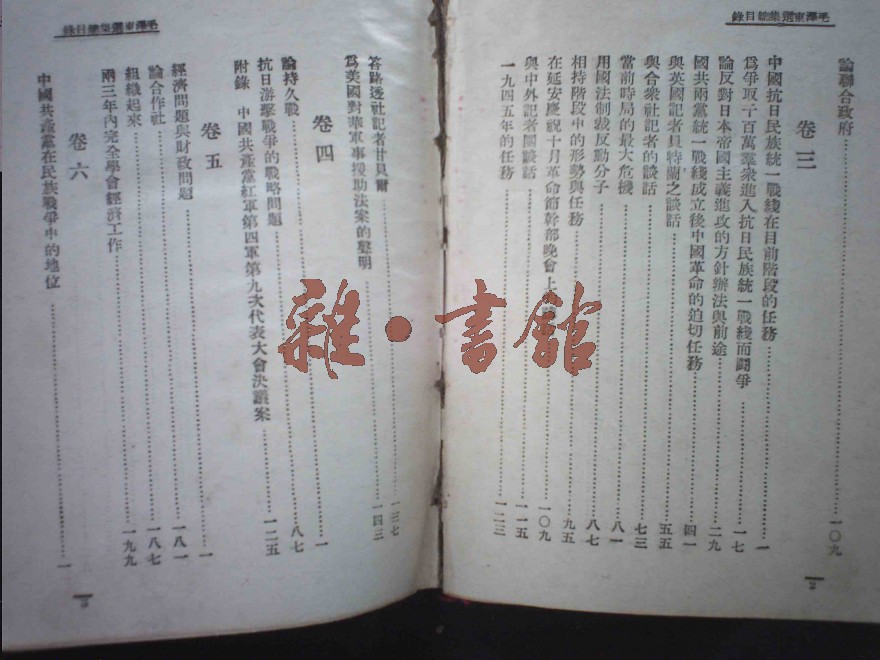 毛澤東選集總目錄
論聯合政府……一〇九
卷三
中國抗日民族統一戰綫在目前階段的任務……一
爲爭取千百萬羣衆進入抗日民族統一戰綫而鬪爭……一七
論反對日本帝國主義進攻的方針辦法與前途……二九
國共兩黨統一戰綫成立後中國革命的迫切任務……四一
與英國記者貝特蘭之談話……五五
與合衆社記者的談話……七三
當前時局的最大危機……八一
用國法制裁反動分子……八七
相持階段中的形勢與任務……九五
在延安慶祝十月革命節幹部晚會上……一〇九
與中外記者團談話……一一五
一九四五年的任務……一二三
毛澤東選集總目錄
答路透社記者甘貝爾……一三七
爲美國對華軍事援助法案的聲明……一四三
卷四
論持久戰……一
抗日游擊戰爭的戰略問題……八七
附錄 中國共產黨紅軍第四軍第九次代表大會決議案……一二五
卷五
經濟問題與財政問題……一
論合作社……一八一
組織起來……一八七
兩三年內完全學會經濟工作……一九九
卷六
中國共產黨在民族戰爭中的地位……一
雜·書館